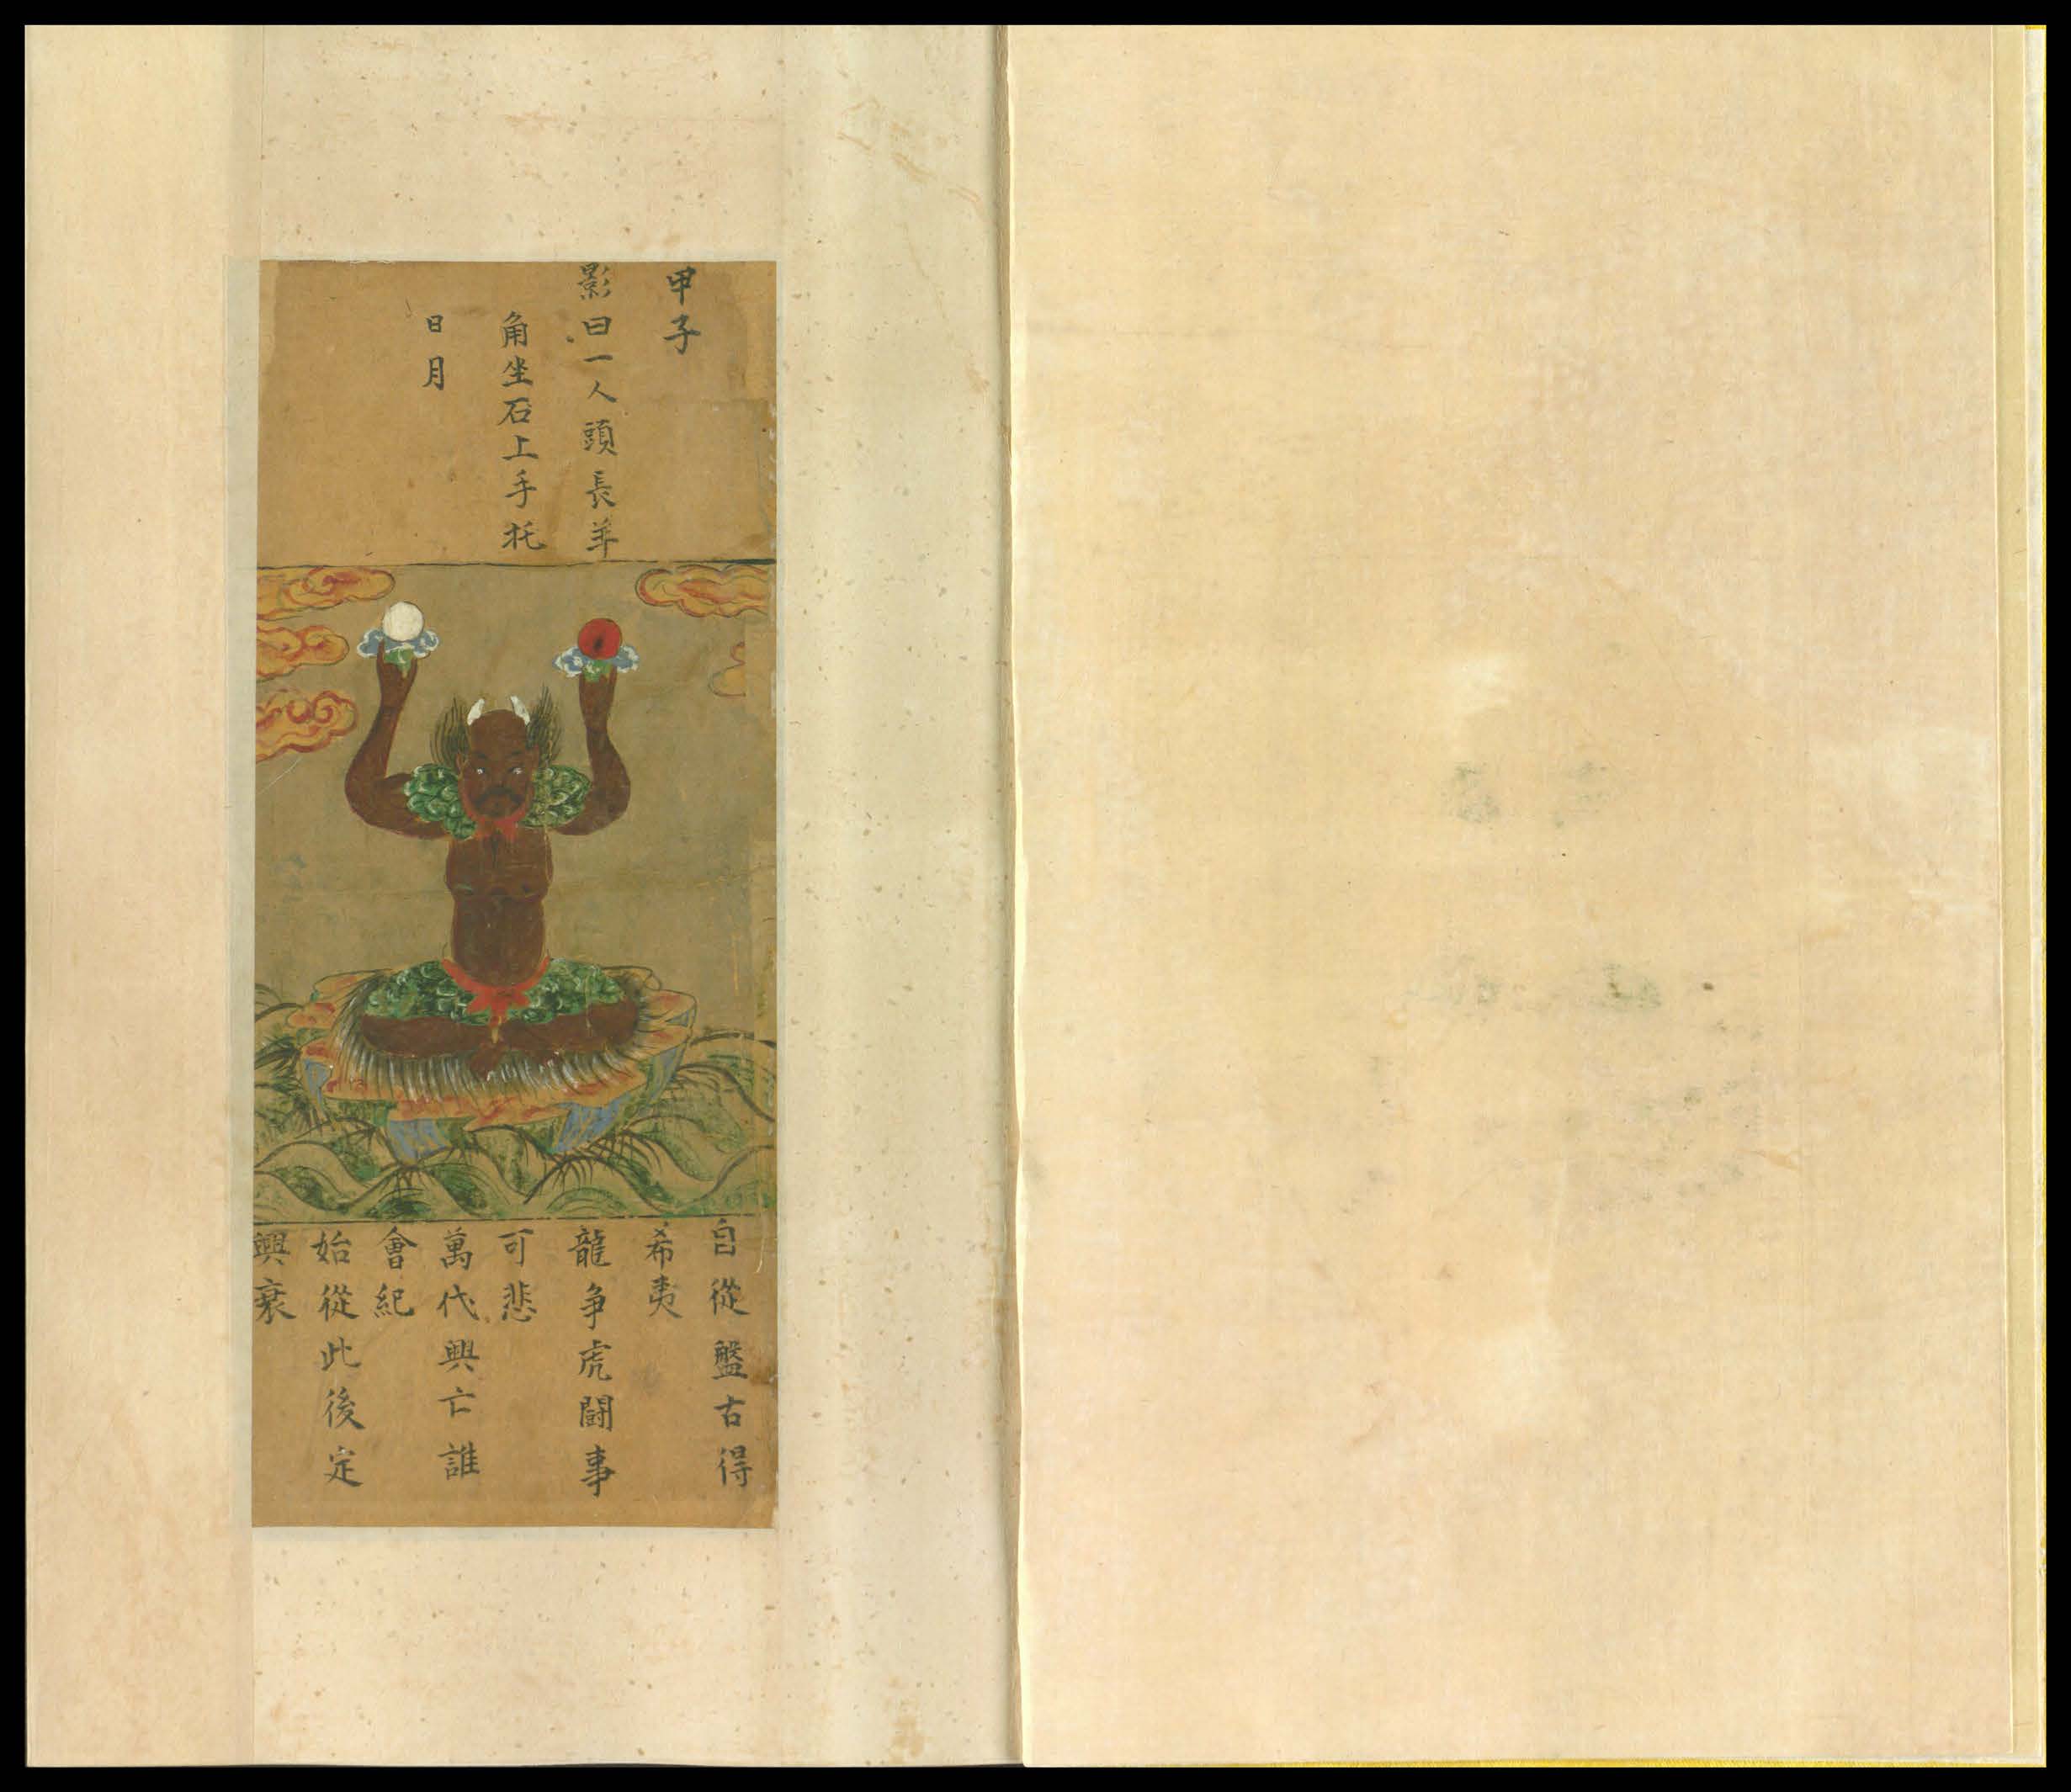 甲子
影曰一人頭長羊
角坐石上手托
日月
自從盤古得
希夷
龍爭虎鬪事
可悲
萬代興亡誰
會紀
始從此後定
興衰